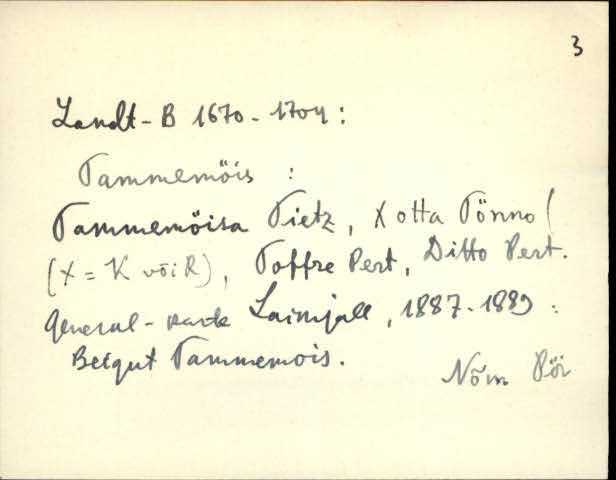 3
Landt-B 1670-1704:
Tammemöis :
Tammemöisa Tietz, Xotta Tönno (
(X = K või R), Toffre Pert, Ditto Pert.
General-karte Laimjall, 1887-1889:
Beigut Tammemois.
Nõm Pöi